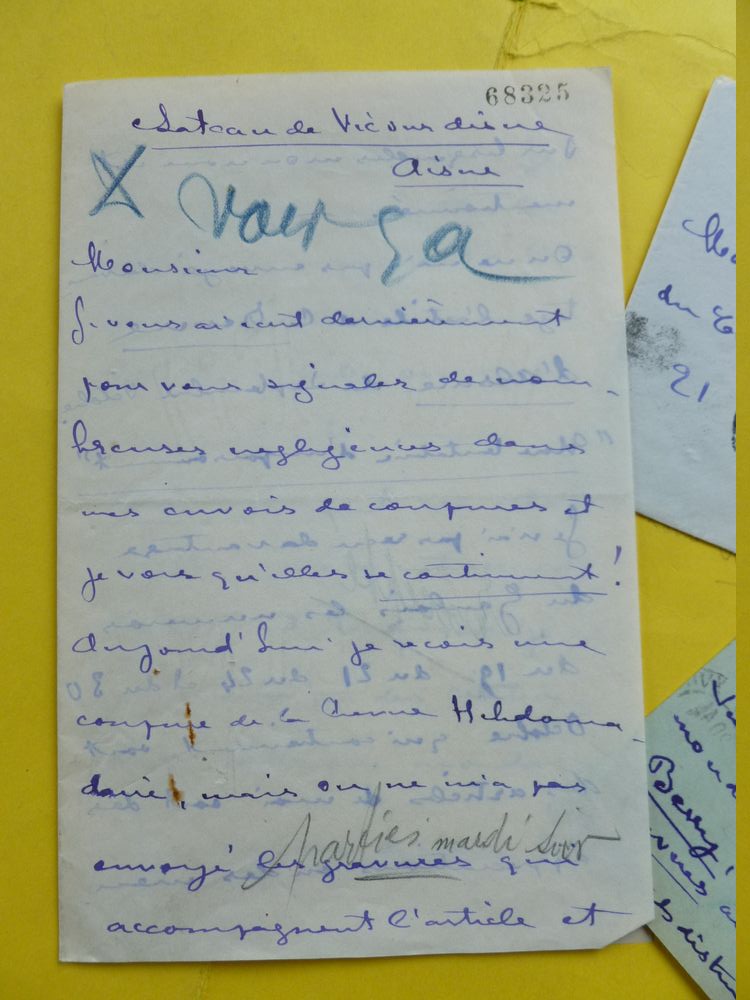 68325
Château de Vic sur Aisne
Aisne
X voir ça
Monsieur
Je vous ai écrit dernièrement
pour vous signaler de nom-
breuses négligences dans
mes envois de coupures et
je vois qu'elles se continuent!
Aujourd'hui je reçois une
coupure de la Revue Hebdoma-
daire, mais on ne m'a pas
parties mardi soir
envoyé les gravures qui
accompagnent l'article et
du
21
Berry